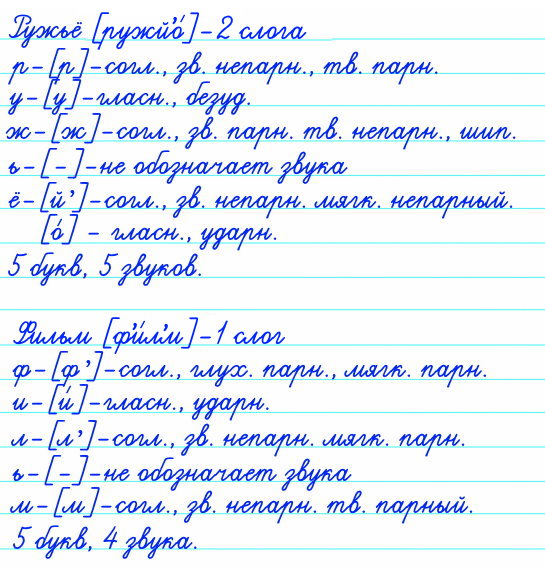 Ружьё [ружй’о́] – 2 слога
р – [р] – согл., зв. непарн., тв. парн.
у – [у] – гласн., безуд.
ж – [ж] – согл., зв. парн. тв. непарн., шип.
ь – [–] – не обозначает звука
ё – [й’] – согл., зв. непарн. мягк. непарный.
[о́] – гласн., ударн.
5 букв, 5 звуков.
Фильм [ф’и́л’м] – 1 слог
ф – [ф’] – согл., глух. парн., мягк. парн.
и – [и́] – гласн., ударн.
л – [л’] – согл., зв. непарн. мягк. парн.
ь – [–] – не обозначает звука
м – [м] – согл., зв. непарн. тв. парный.
5 букв, 4 звука.